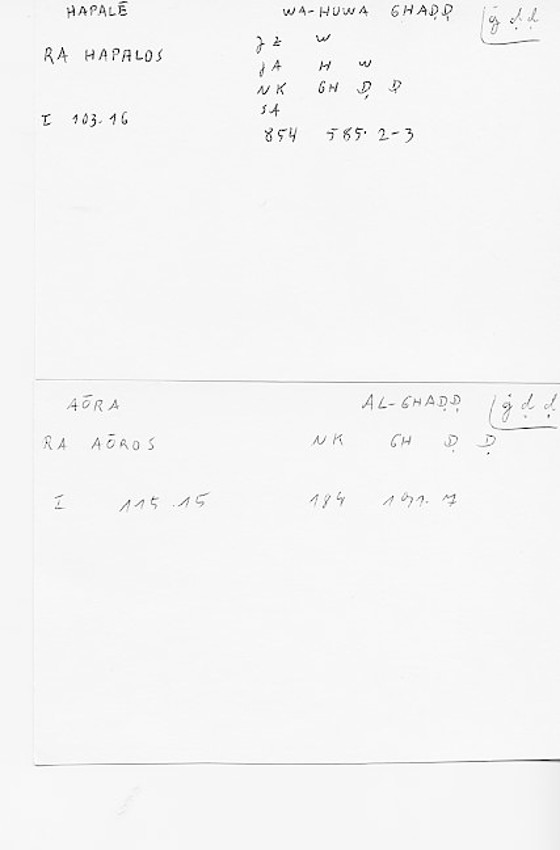 HAPALĒ WA-HUWA GHAḌḌ ġ ḍ ḍ
RA HAPALOS
JZ W
JA H W
NK GH Ḍ Ḍ
SA
I 103.16
854 585.2-3
AŌRA AL-GHAḌḌ ġ ḍ ḍ
RA AŌROS NK GH Ḍ Ḍ
I 115.15 184 191.7